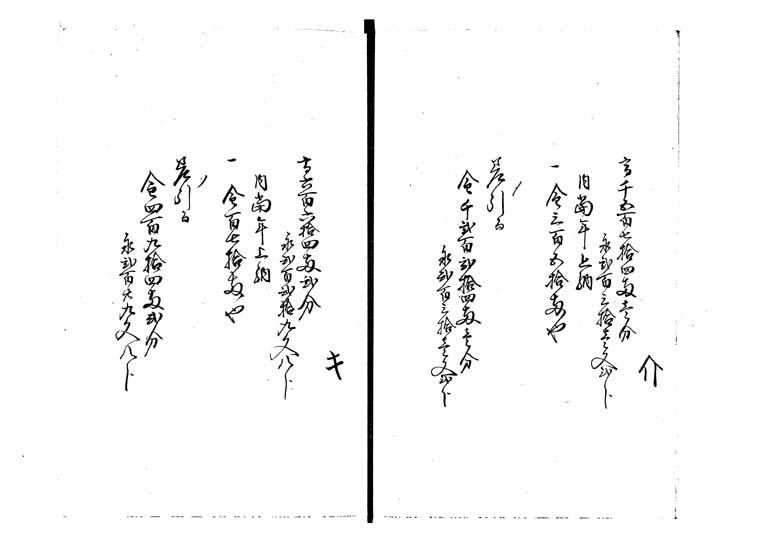 介
高千五百七拾四両壱分
永弐百三拾壱文弐分
内当年上納
一金三百五拾両也
差引而
金千弐百弐拾四両壱分
永弐百三拾壱文弐分
キ
高六百六拾四両弐分
永弐百弐拾九文八分
内当年上納
一金百七拾両也
差引而
金四百九拾四両弐分
永弐百弐拾九文八分